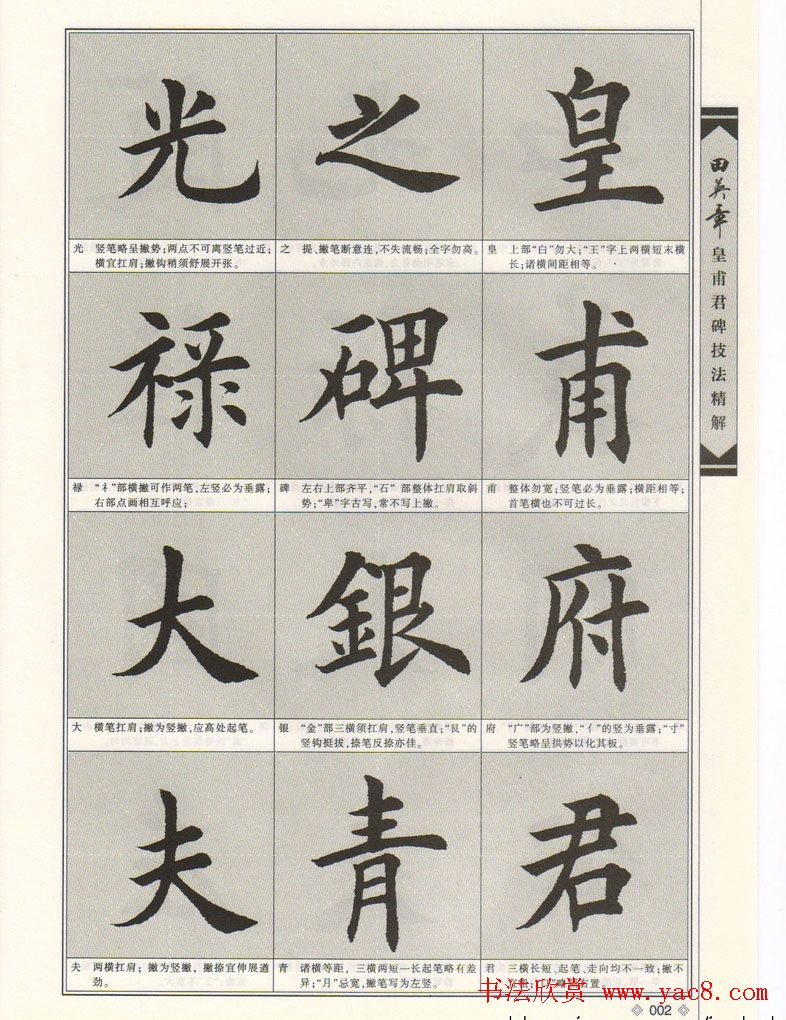 田英章
皇甫君碑技法精解
皇
皇 上部“白”勿大；“王”字上两横短末横
长；诸横间距相等。
甫
甫 整体勿宽；竖笔必为垂露；横距相等；
首笔横也不可过长。
府
府 “广”部为竖撇，“亻”的竖为垂露；“寸”
竖笔略呈拱势以化其板。
君
君 三横长短、起笔、走向均不一致；撇不
右置。
之
之 提、撇笔断意连，不失流畅；全字勿高。
碑
碑 左右上部齐平，“石”部整体扛肩取斜
势；“卑”字古写，常不写上撇。
銀
银 “金”部三横须扛肩，竖笔垂直；“艮”的
竖钩挺拔，捺笔反捺亦佳。
青
青 诸横等距，三横两短一长起笔略有差
异；“月”忌宽，撇笔写为左竖。
光
光 竖笔略呈撇势；两点不可离竖笔过近；
横宜扛肩；撇钩稍须舒展开张。
禄
禄 “礻”部横撇可作两笔，左竖必为垂露；
右部点画相互呼应；
大
大 横笔扛肩；撇为竖撇，应高处起笔。
夫
夫 两横扛肩；撇为竖撇，撇捺宜伸展遒
劲。
书法欣赏 www.yac8.com
002